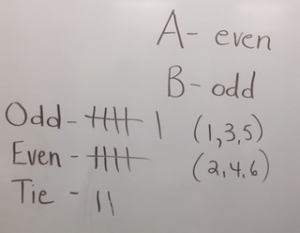 A- even
B- odd
Odd - 卌 | (1,3,5)
Even - 卌 (2,4,6)
Tie - ||